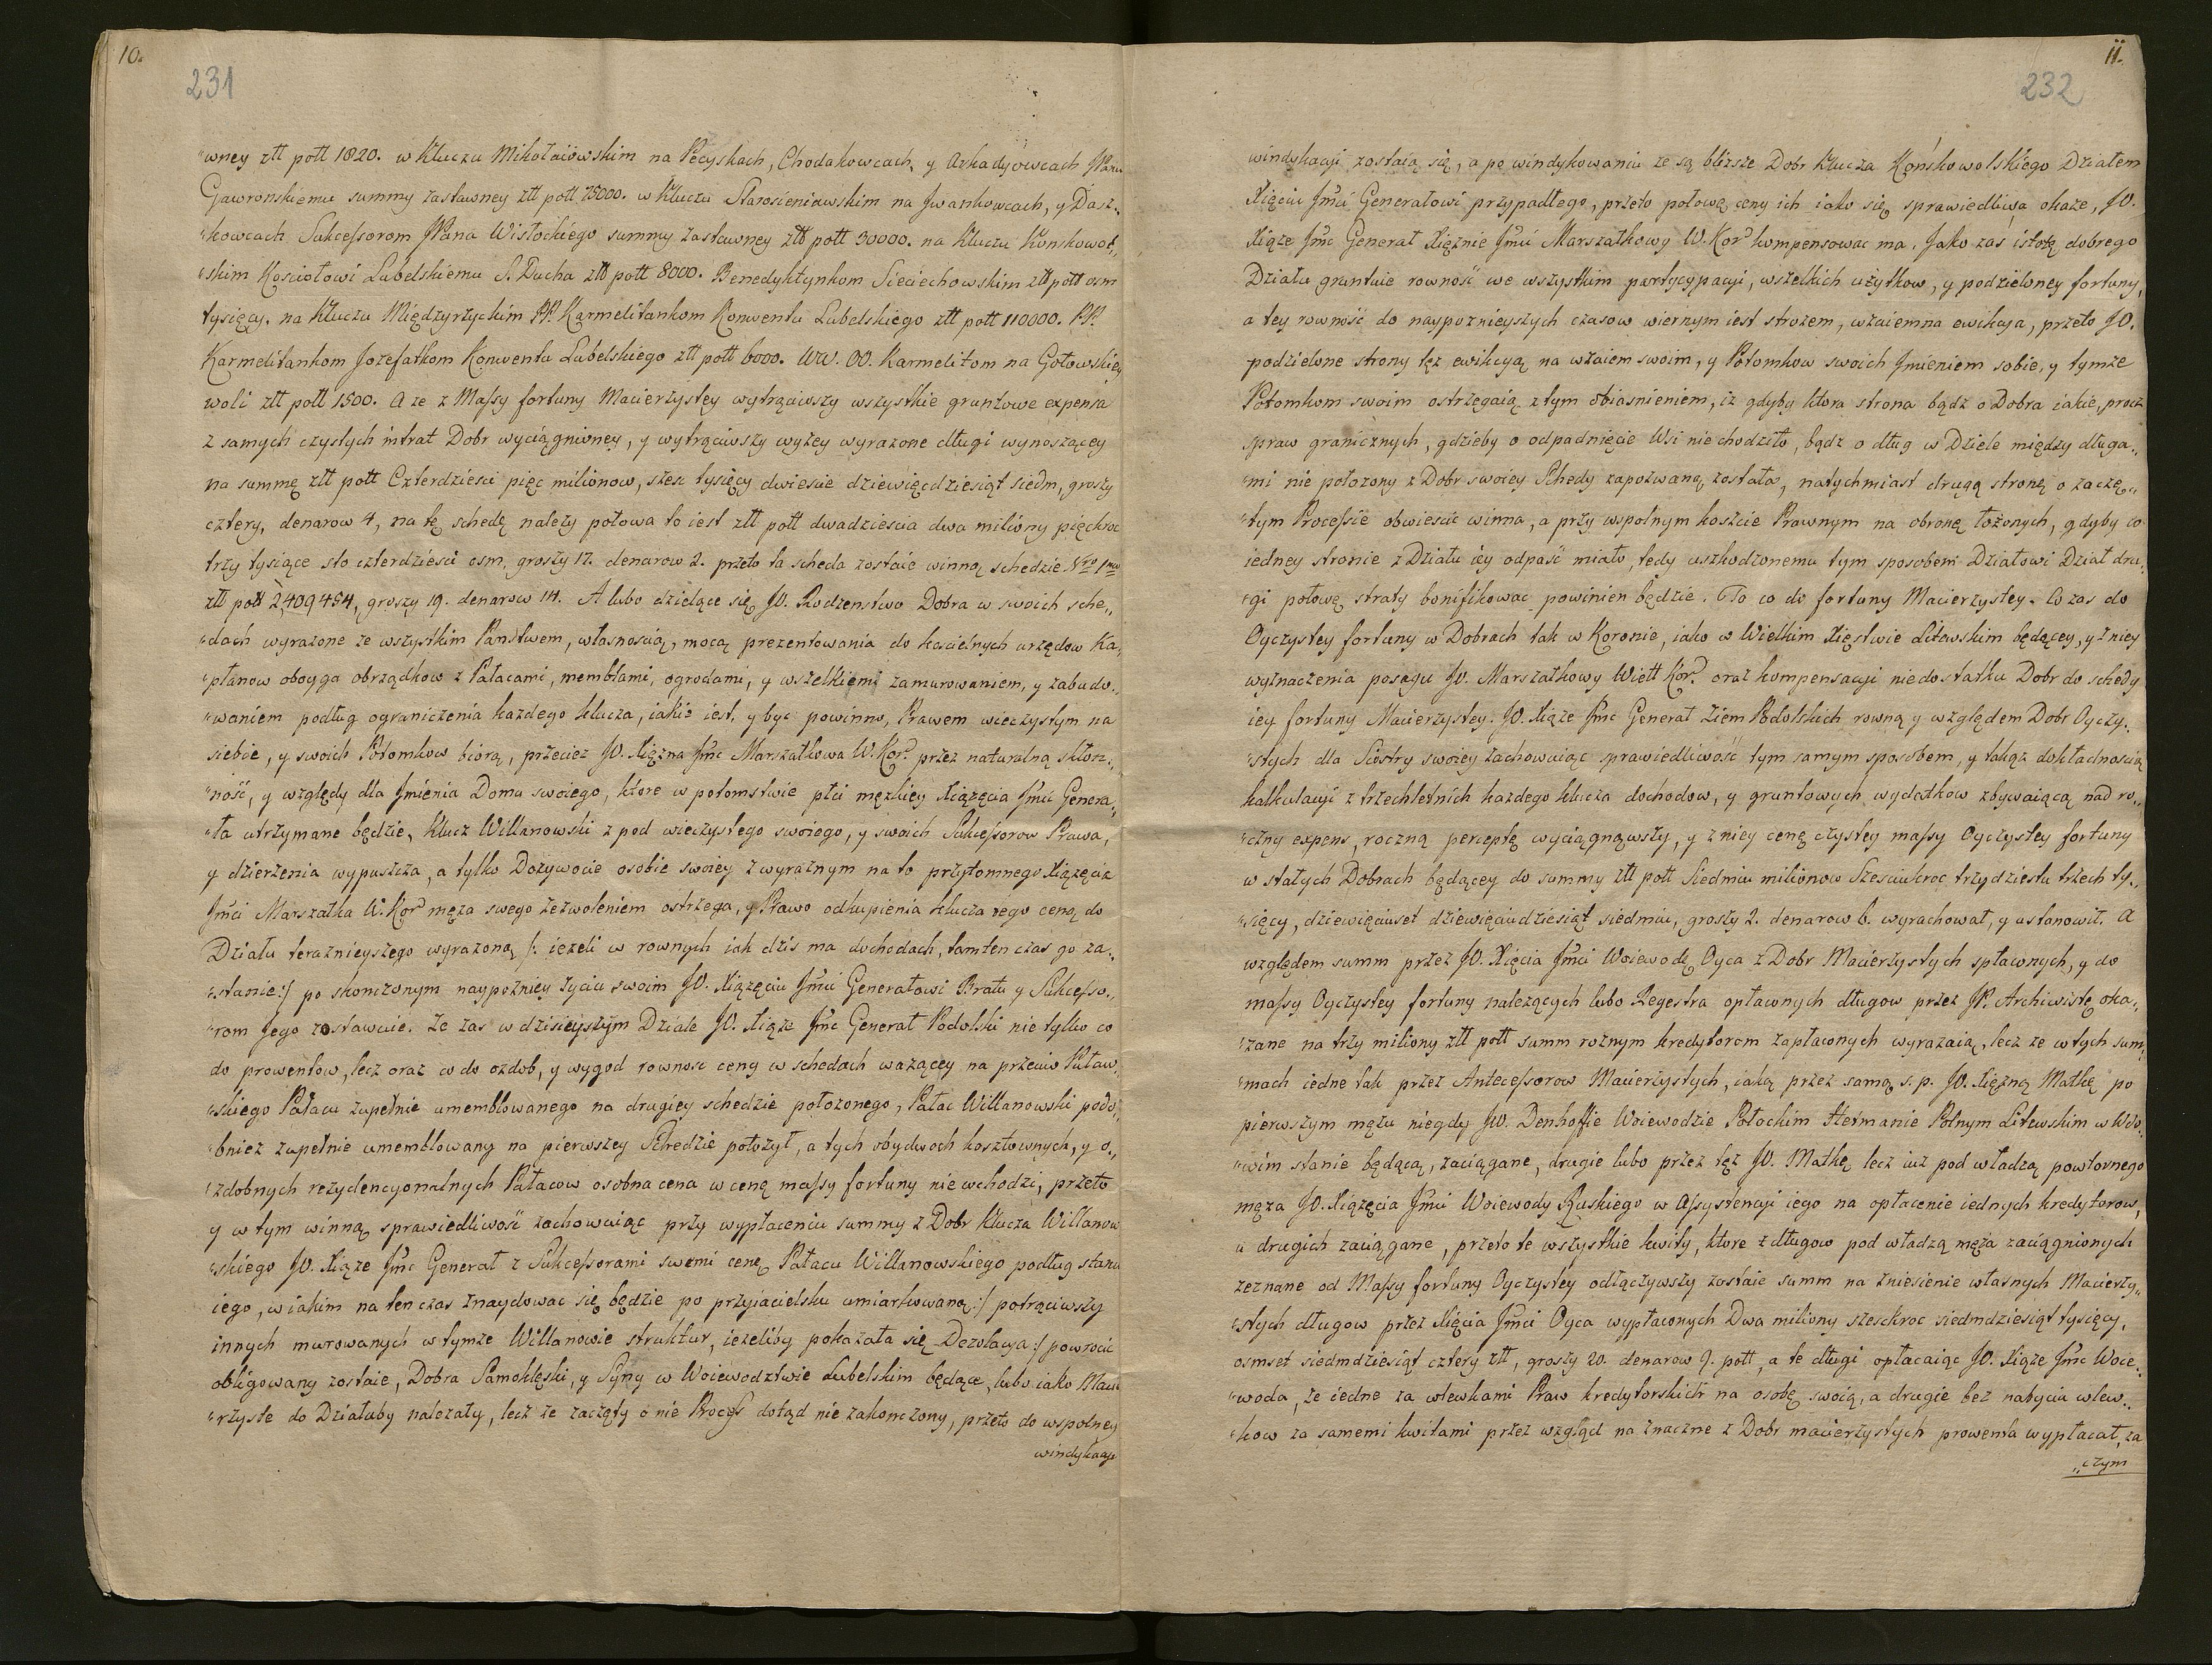 10.
231
"wney złł poll 1820. w Kluczu Mikołaiowskim na Pecyskach, Chodakowcach, y Arkadyowcach JPanu
Gawronskiemu summy zastawney złł poll 75000. w Kluczu Starosieniawskim na Jwankowcach, y Dasz„
"kowcach Sukcessorom JPana Wisłockiego summy zastawney złł poll 30000. na Kluczu Konskowol„
"skim Kosciołowi Lubelskiemu S. Ducha złł poll 8000. Benedyktynkom Sieciechowskim złł poll osm
tysięcy. na Kluczu Międzyrzyckim PP. Karmelitankom Konwentu Lubelskiego złł poll 110000. PP.
Karmelitankom Jozefatkom Konwentu Lubelskiego złł poll 6000. WW. OO. Karmelitom na Gołowskiey
woli złł poll 1500. A ze z Massy fortuny Macierzystey wytrąciwszy wszystkie gruntowe expensa
z samych czystych intrat Dobr wyciągnioney, y wytrąciwszy wyzey wyrazone długi wynoszącey
na summę złł poll Czterdziesci pięc milionow, szesc tysięcy dwiescie dziewięcdziesiąt siedm, groszy
cztery, denarow 4, na tę schedę nalezy połowa to iest złł poll dwadziescia dwa miliony pięckroc
trzy tysiące sto czterdziesci osm, groszy 17. denarow 2. przeto ta scheda zostaie winną schedzie Nro 1mo
złł poll 2,409454, groszy 19. denarow 14. A lubo dzielące się JO. Rodzenstwo Dobra w swoich sche„
"dach wyrazone ze wszystkim Panstwem, własnoscią, mocą prezentowania do koscielnych urzędow Ka„
"płanow oboyga obrządkow z Pałacami, memblami, ogrodami, y wszelkiemi zamurowaniem, y zabudo„
"waniem podług ograniczenia kazdego klucza, iakie iest, y byc powinno, Prawem wieczystym na
siebie, y swoich Potomkow biorą, przeciez JO. Xięzna Jmc Marszałkowa W. Kor. przez naturalną skłon„
"ność, y względy dla Jmienia Domu swoiego, ktore w potomstwie płci męzkiey Xiązęcia Jmci Genera„
"ła utrzymane będzie, Klucz Willanowski z pod wieczystego swoiego, y swoich Sukcessorow Prawa,
y dzierzenia wypuszcza, a tylko Dozywocie osobie swoiey z wyraznym na to przytomnego Xiązęcia
Jmci Marszałka W. Kor męza swego zezwoleniem ostrzega, y Prawo odkupienia klucza tego ceną do
Działu teraznieyszego wyrazoną /: iezeli w rownych iak dzis ma dochodach, tamten czas go za„
"stanie :/ po skonczonym naypozniey zyciu swoim JO. Xiązęciu Jmci Generałowi Bratu y Sukcesso„
"rom Jego zostawuie. Ze zas w dzisieyszym Dziale JO. Xiąze Jmc Generał Podolski nie tylko co
do prowentow, lecz oraz co do ozdob, y wygod rownosc ceny w schedach wazącey na przeciw Puław„
"skiego Pałacu zupełnie umemblowanego na drugiey schedzie połozonego, Pałac Willanowski podo„
"bniez zupełnie umemblowany na pierwszey Schedzie połozył, a tych obydwoch kosztownych, y o„
"zdobnych rezydencyonalnych Pałacow osobna cena w cenę massy fortuny nie wchodzi, przeto
y w tym winną sprawiedliwość zachowuiąc przy wypłaceniu summy z Dobr Klucza Willanow
"skiego JO. Xiąze Jmc Generał z Sukcessorami swemi cenę Pałacu Willanowskiego podług stanu
iego, w iakim na ten czas znaydowac się będzie po przyiacielsku umiarkowaną :/ potrąciwszy
innych murowanych w tymze Willanowie struktur, iezeliby pokazała się Dezolacya :/ powrocic
obligowany zostaie, Dobra Samoklęski, y Syny w Woiewodztwie Lubelskim będące, lubo iako Macie
"rzyste do Działuby nalezały, lecz ze zaczęty o nie Process dotąd nie zakonczony, przeto do wspolney
windykacyi
11.
232
windykacyi zostaią się, a po windykowaniu ze są blizsze Dobr Klucza Końskowolskiego Działem
Xięciu Jmci Generałowi przypadłego, przeto połowę ceny ich iako się sprawiedliwa okaze, JO.
Xiąze Jmc Generał Xięznie Jmci Marszałkowy W. Kor kompensowac ma. Jako zaś istotę dobrego
Działu gruntuie rowność we wszystkim partycypacyi, wszelkich uzytkow, y podzieloney fortuny,
a tey rownosc do naypoznieyszych czasow wiernym iest strozem, wzaiemna ewikcya, przeto JO.
podzielone strony tęz ewikcyą na wzaiem swoim, y Potomkow swoich Jmieniem sobie, y tymze
Potomkom swoim ostrzegaią z tym obiasnieniem, iz gdyby ktora strona bądz o Dobra iakie, procz
spraw granicznych, gdzieby o odpadnięcie Wsi nie chodziło, bądz o dług w Dziele między długa„
"mi nie połozony z Dobr swoiey Schedy zapozwaną została, natychmiast drugą stronę o zaczę„
"tym Processie obwiescic winna, a przy wspolnym koszcie Prawnym na obronę łozonych, gdyby co
iedney stronie z Działu iey odpaść miało, tedy uszkodzonemu tym sposobem Działowi Dział dru„
"gi połowę straty bonifikowac powinien będzie. To co do fortuny Macierzystey. Co zas do
Oyczystey fortuny w Dobrach tak w Koronie, iako w Wielkim Xięstwie Litewskim będącey, y z niey
wyznaczenia posagu JO. Marszałkowy Wiell Kor. oraz kompensacyi niedostatku Dobr do schedy
iey fortuny Macierzystey. JO. Xiąze Jmc Generał Ziem Podolskich rowną y względem Dobr Oyczy„
"stych dla Siostry swoiey zachowuiąc sprawiedliwość tym samym sposobem, y takąz dokładnoscią
kalkulacyi z trzechletnich kazdego klucza dochodow, y gruntowych wydatkow zbywaiącą nad ro„
"czną expens, roczną perceptę wyciągnąwszy, y z niey cenę czystey massy Oyczystey fortuny
w stałych Dobrach będącey do summy złł poll Siedmiu milionow Szesciukroc trzydziestu trzech ty„
"sięcy, dziewięciuset dziewięciudziesiąt siedmiu, groszy 2. denarow 6. wyrachował, y ustanowił. A
względem summ przez JO. Xięcia Jmci Woiewodę Oyca z Dobr Macierzystych spłaconych, y do
massy Oyczystey fortuny nalezących lubo Regestra opłaconych długow przez JP. Archiwistę oka„
"zane na trzy miliony złł poll summ roznym kredytorom zapłaconych wyrazaią, lecz ze w tych sum„
"mach iedne tak przez Antecessorow Macierzystych, iako przez samą s. p. JO. Xięznę Matkę po
pierwszym męzu niegdy JW. Denhoffie Woiewodzie Połockim Hetmanie Polnym Litewskim w Wdo„
"wim stanie będącą, zaciągane, drugie lubo przez tęz JO. Matkę lecz iuz pod władzą powtornego
męza JO. Xiązęcia Jmci Woiewody Ruskiego w Assystencyi iego na opłacenie iednych kredytorow,
u drugich zaciągane, przeto te wszystkie kwity, ktore z długow pod władzą męza zaciągnionych
zeznane od Massy fortuny Oyczystey odłączywszy zostaie summ na zniesienie własnych Macierzy„
"stych długow przez Xięcia Jmci Oyca wypłaconych Dwa miliony szesckroc siedmdziesiąt tysięcy,
osmset siedmdziesiąt cztery złł, groszy 20. denarow 9. poll, a te długi opłacaiąc JO. Xiąze Jmc Woie„
"woda, ze iedne za wlewkami Praw kredytorskich na osobę swoią, a drugie bez nabycia wlew„
"kow za samemi kwitami przez wzgląd na znaczne z Dobr macierzystych prowenta wypłacał, za
„czym